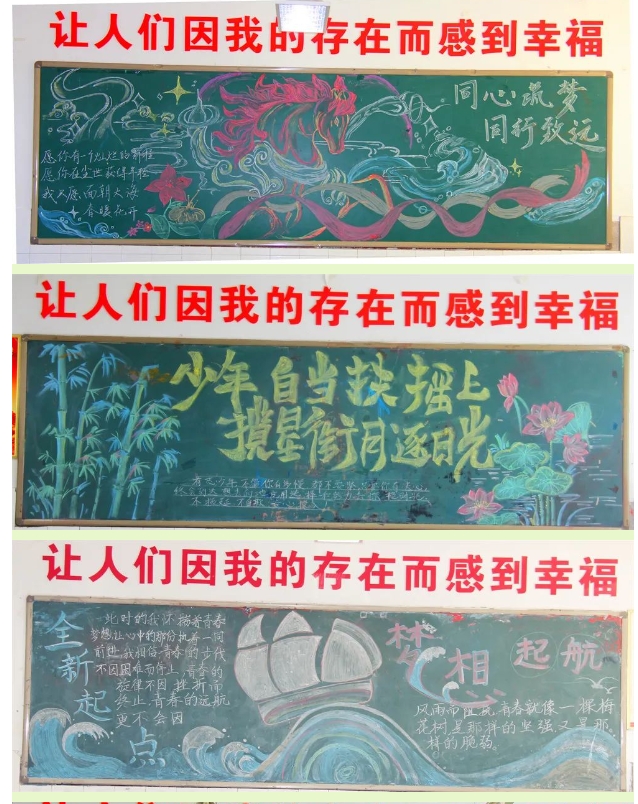 让人们因我的存在而感到幸福
同心筑梦
同行致远
愿你有一个灿烂的前程
愿你在尘世获得幸福
我只愿面朝大海
春暖花开
让人们因我的存在而感到幸福
少年自当扶摇上
揽星衔月逐日光
让人们因我的存在而感到幸福
全新起点
此时的我怀揣着青春
梦想让心中的那份执着一同
前进。我相信青春的步伐
不因困难而停止,青春的
旋律不因挫折而
终止,青春的远航
更不会因
梦想起航
风雨而阻挠,青春就像一棵梅
花树是那样的坚强,又是那
样的脆弱。